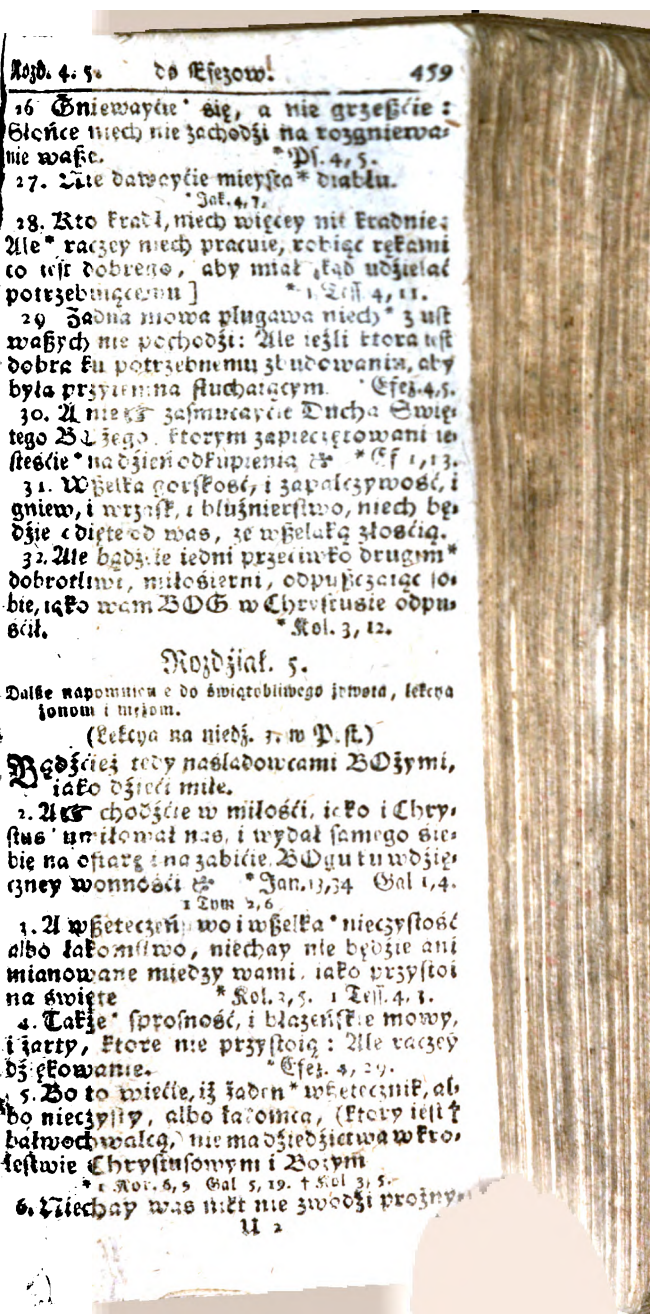 Rozd. 4. 5. do Efezow. 459
26 Gniewayćie * się, a nie grzeßćie:
Słońce niech nie zachodźi na rozgniewa-
nie waße. * Ps. 4, 5.
27. Nie dawayćie mieysca * diabłu.
* Jak. 4, 7.
28. Kto kradł, niech więcey nie kradnie;
Ale * raczey niech pracuie, robiąc rękami
co iest dobrego, aby miał skąd udźielać
potrzebuiącemu ] * 1 Tess. 4, 11.
29 Żadna mowa plugawa niech * z ust
waßych nie pochodźi: Ale ieżli ktora iest
dobra ku potrzebnemu zbudowaniu, aby
była przyiemna słuchaiącym. * Efez. 4, 5.
30. A nie ☞ zasmucayćie Ducha Swię-
tego BOżego, ktorym zapieczętowani ie-
steśćie * na dźień odkupienia ☜ * Ef 1, 13.
31. Wßelka gorzkość, i zapalczywość, i
gniew, i wrzask, i bluźnierstwo, niech bę-
dźie odięte od was, ze wßelaką złośćią.
32. Ale bądźćie iedni przećiwko drugim *
dobrotliwi, miłośierni, odpußczaiąc so-
bie, iako wam BOG w Chrystusie odpu-
śćił. * Kol. 3, 12.
Rozdźiał. 5.
Dalße napomnienie do świątobliwego żywota, lekcya
żonom i mężom.
(Lekcya na niedź. 3. w P. st.)
Bądźćież tedy naśladowcami BOżymi,
iako dźieći miłe.
2. A ☞ chodźćie w miłośći, iako i Chry-
stus * umiłował nas, i wydał samego sie-
bie na ofiarę i na zabićie, BOgu tu wdźię-
czney wonnośći ☜ * Jan. 13, 34 Gal 1, 4.
1 Tym 2, 6
3. A wßeteczeństwo i wßelka * nieczystość
albo łakomstwo, niechay nie będźie ani
mianowane miedzy wami, iako przystoi
na święte * Kol. 3, 5. 1 Tess. 4, 3.
4. Także * sprosność, i błazeńskie mowy,
i żarty, ktore nie przystoią: Ale raczey
dźiękowanie. * Efez. 4, 29.
5. Bo to wiećie, iż żaden * wßetecznik, al-
bo nieczysty, albo łakomca, (ktory iest †
bałwochwalcą,) nie ma dźiedźictwa w kro-
lestwie Chrystusowym i Bożym
* 1 Kor. 6, 9 Gal 5, 19. † Kol 3, 5.
6. Niechay was nikt nie zwodźi prożny-
U 2